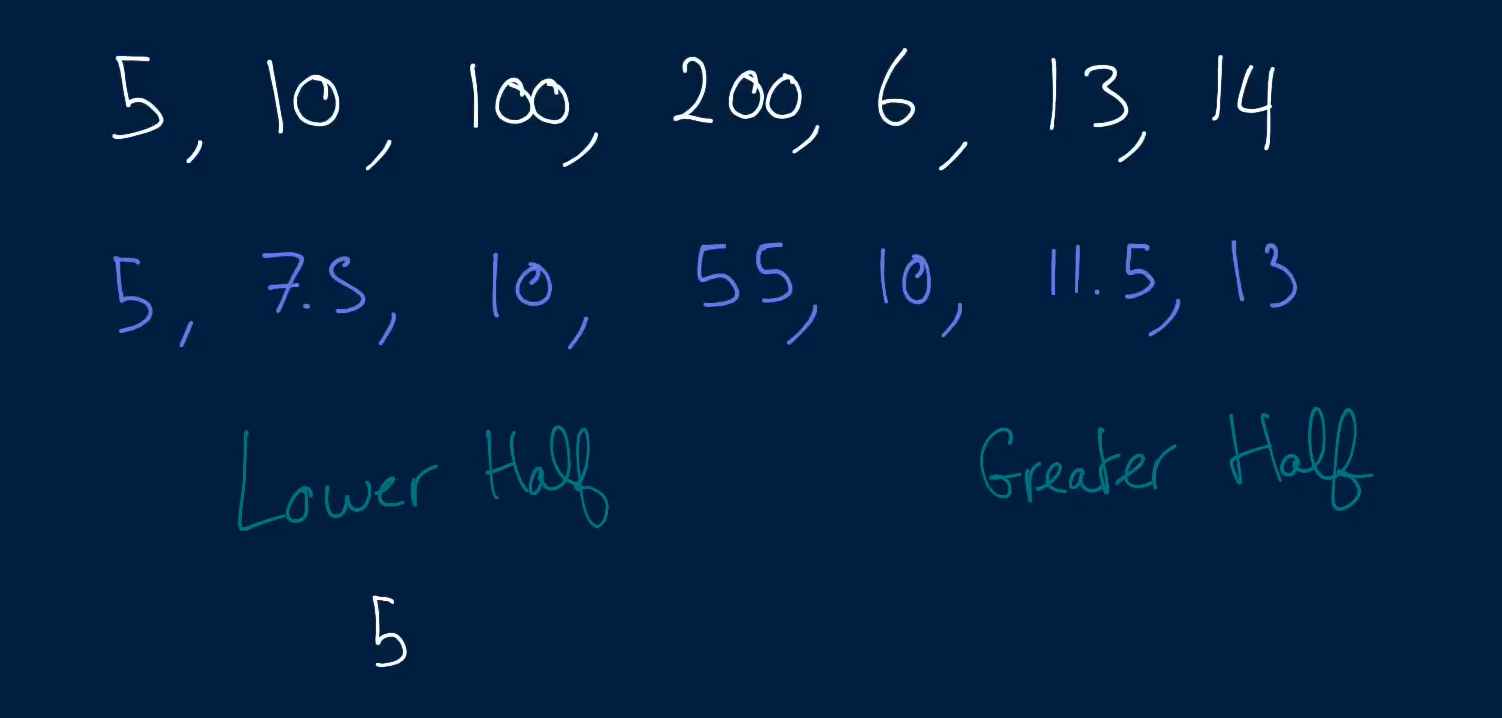 5, 10, 100, 200, 6, 13, 14
5, 7.5, 10, 55, 10, 11.5, 13
Lower Half Greater Half
5